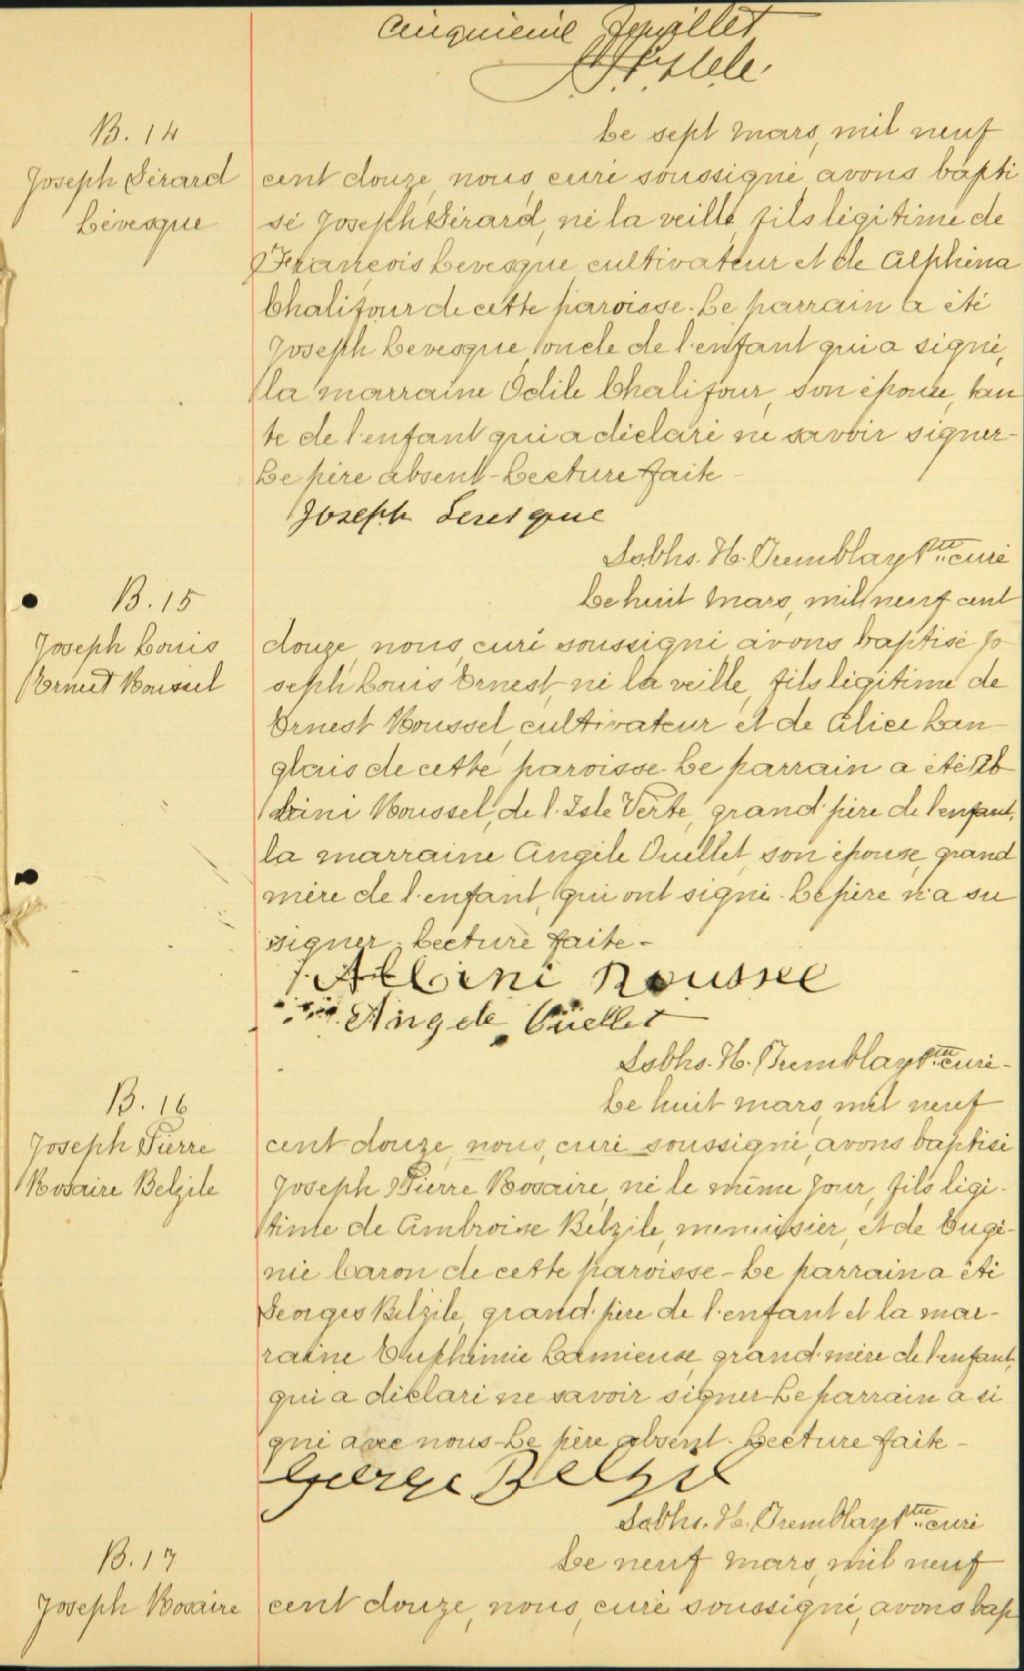 cinquième feuillet
B. 14
Joseph Gérard
Lévesque
Le sept mars, mil neuf
cent douze, nous, curé soussigné, avons bapti
sé Joseph Gérard, né la veille, fils légitime de
François Levesque, cultivateur et de Alphéna
Chalifour de cette paroisse. Le parrain a été
Joseph Levesque, oncle de l'enfant qui a signé,
la marraine Odile Chalifour, son épouse, tan
te de l'enfant qui a déclaré ne savoir signer-
Le père absent - Lecture faite -
Joseph Levesque
H. Tremblay Ptre curé
B. 15
Joseph Louis
Ernest Roussel
Le huit mars, mil neuf cent
douze, nous, curé soussigné avons baptisé Jo
seph Louis Ernest, né la veille, fils légitime de
Ernest Roussel, cultivateur et de Alice Lan-
glais de cette paroisse. Le parrain a été Al
bini Roussel, de l'Isle Verte, grand'père de l'enfant,
la marraine Angèle Ouellet, son épouse, grand
mère de l'enfant, qui ont signé. Le père n'a su
signer. Lecture faite -
Albini Roussel
Angele Ouellet
H. Tremblay Ptre curé -
B. 16
Joseph Pierre
Rosaire Belzile
Le huit mars, mil neuf
cent douze, nous, curé soussigné, avons baptisé
Joseph Pierre Rosaire, né le même jour, fils légi-
time de Ambroise Belzile, menuisier, et de Eugé-
nie Caron de cette paroisse - Le parrain a été
Georges Belzile, grand'père de l'enfant et la mar-
raine Euphémie Lamieuse, grand'mère de l'enfant,
qui a déclaré ne savoir signer - Le parrain a si
gné avec nous - Le père absent. Lecture faite -
George Belzil
H. Tremblay Ptre curé
B. 17
Joseph Rosaire
Le neuf mars, mil neuf
cent douze, nous, curé soussigné, avons bap